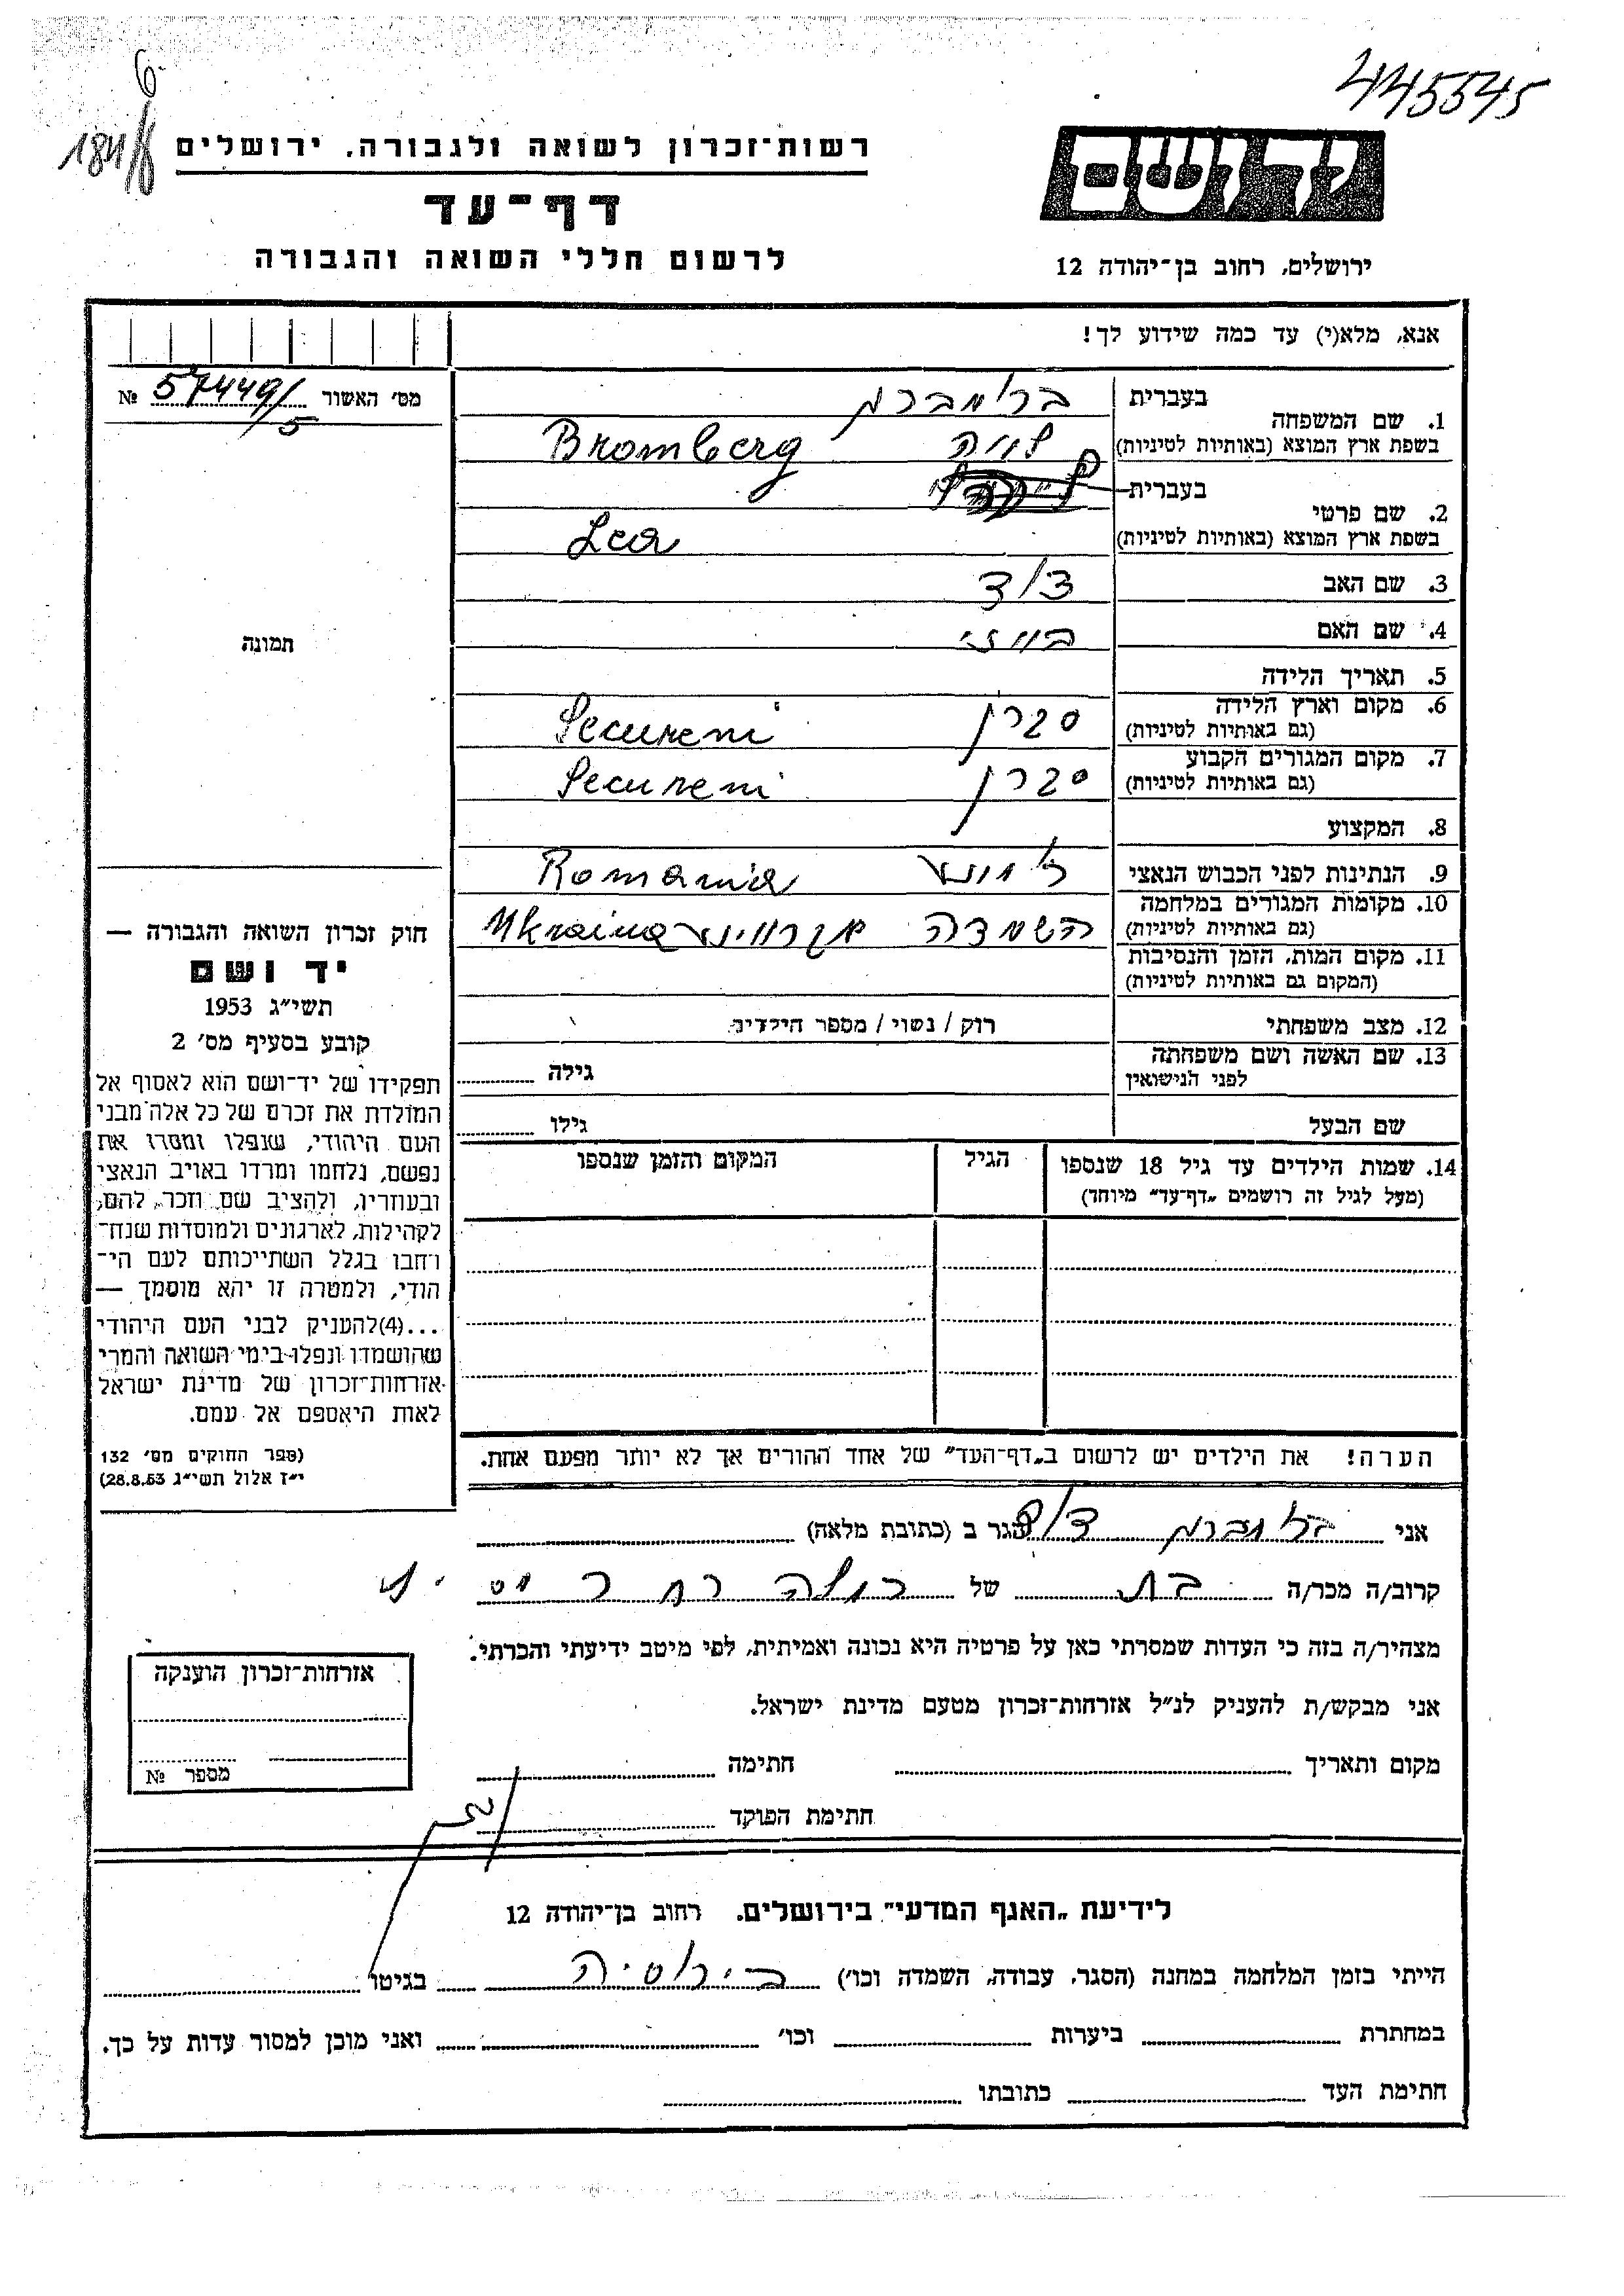 445545
6
184/8
רשות־זכרון לשואה ולגבורה, ירושלים
דף־עד
לרשום חללי השואה והגבורה
יד ושם
ירושלים, רחוב בן־יהודה 12
אנא, מלא(י) עד כמה שידוע לך!
מס׳ האשור 57449/5 №
בעברית
1. שם המשפחה ברומברג
בשפת ארץ המוצא (באותיות לטיניות) Bromberg
לאה
בעברית
2. שם פרטי
בשפת ארץ המוצא (באותיות לטיניות) Lea
3. שם האב דוד
4. שם האם
תמונה
5. תאריך הלידה
6. מקום וארץ הלידה סקרן Secureni
(גם באותיות לטיניות)
7. מקום המגורים הקבוע סקרן Secureni
(גם באותיות לטיניות)
8. המקצוע
9. הנתינות לפני הכבוש הנאצי Romania
10. מקומות המגורים במלחמה השמדה אקראינע Ukraina
(גם באותיות לטיניות)
11. מקום המות, הזמן והנסיבות
(המקום גם באותיות לטיניות)
12. מצב משפחתי רוק / נשוי / מספר הילדים
13. שם האשה ושם משפחתה
לפני הנישואין גילה
שם הבעל גילו
14. שמות הילדים עד גיל 18 שנספו
(מעל לגיל זה רושמים „דף־עד״ מיוחד)
הגיל
המקום והזמן שנספו
חוק זכרון השואה והגבורה —
יד ושם
תשי״ג 1953
קובע בסעיף מס׳ 2
תפקידו של יד־ושם הוא לאסוף אל
המולדת את זכרם של כל אלה מבני
העם היהודי, שנפלו ומסרו את
נפשם, נלחמו ומרדו באויב הנאצי
ובעוזריו, ולהציב שם וזכר להם,
לקהילות, לארגונים ולמוסדות שנח־
רחבו בגלל השתייכותם לעם הי־
הודי, ולמטרה זו יהא מוסמך —
...(4)להעניק לבני העם היהודי
שהושמדו ונפלו בימי השואה והמרי
אזרחות־זכרון של מדינת ישראל
לאות היאספם אל עמם.
(ספר החוקים מס׳ 132
י״ז אלול תשי״ג 28.8.53)
הערה! את הילדים יש לרשום ב„דף־העד״ של אחד ההורים אך לא יותר מפעם אחת.
אני ברומברג דוד הגר ב (כתובת מלאה)
קרוב/ה מכר/ה בת של
מצהיר/ה בזה כי העדות שמסרתי כאן על פרטיה היא נכונה ואמיתית, לפי מיטב ידיעתי והכרתי.
אני מבקש/ת להעניק לנ״ל אזרחות־זכרון מטעם מדינת ישראל.
מקום ותאריך חתימה
חתימת הפוקד
אזרחות־זכרון הוענקה
מספר №
לידיעת „האגף המדעי״ בירושלים. רחוב בן־יהודה 12
הייתי בזמן המלחמה במחנה (הסגר, עבודה, השמדה וכו׳) ברוסיה בגיטו
במחתרת ביערות וכו׳ ואני מוכן למסור עדות על כך.
חתימת העד כתובתו